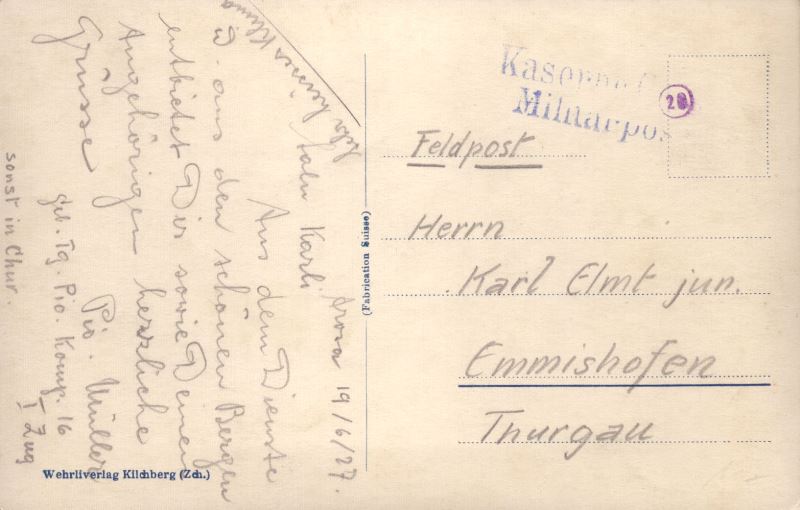 Arosa 19/6/27.
Salu Karli
Aus dem Dienste
u. aus den schönen Bergen
entbietet Dir sowie Deinen
Angehörigen herzliche
Grüsse
Pio. Müller
Geb. Tg. Pio. Komp. 16
I Zug
sonst in Chur.
Sehr Klima
(Fabrication Suisse)
Wehrliverlag Kilchberg (Zch.)
Militärpos
28
Feldpost
Herrn
Karl Elmt jun.
Emmishofen
Thurgau